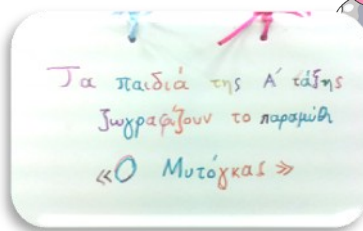 Τα παιδιά της Α΄ τάξης
ζωγραφίζουν το παραμύθι
«Ο Μυτόγκας»